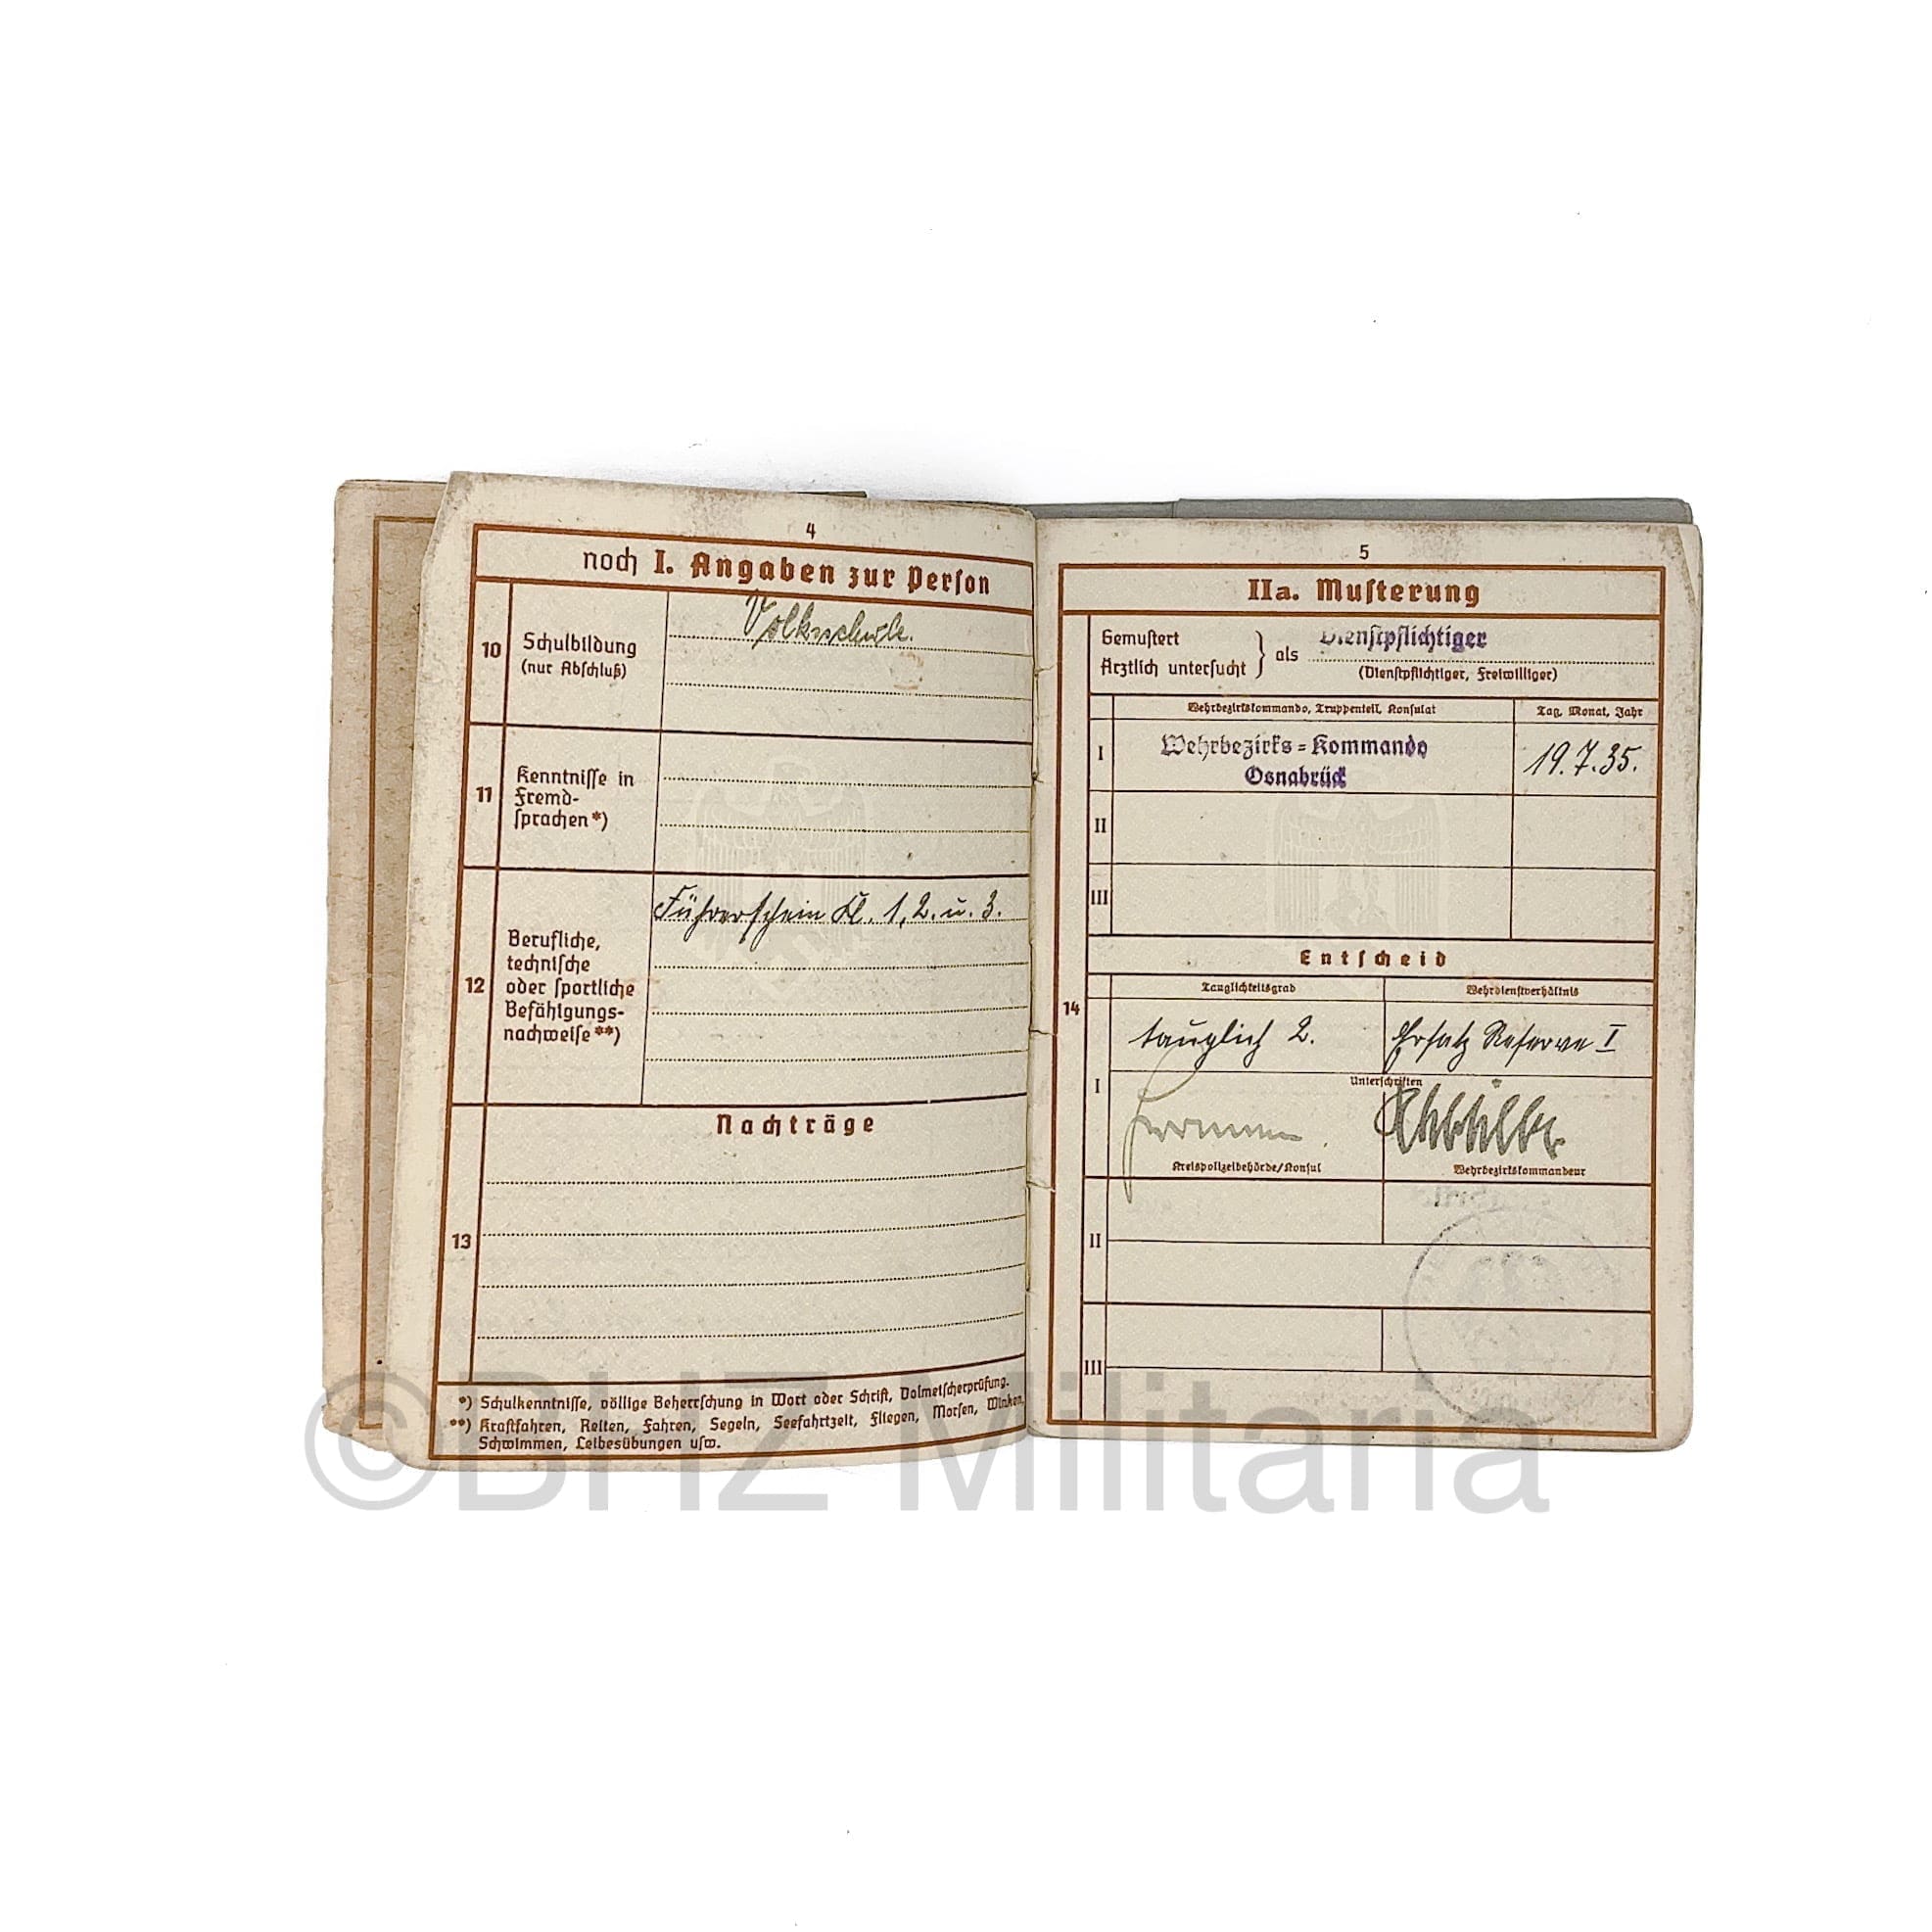 4
noch I. Angaben zur Person
10
Schulbildung
(nur Abschluß)
Volksschule.
11
Kenntnisse in
Fremd-
sprachen*)
12
Berufliche,
technische
oder sportliche
Befähigungs-
nachweise**)
Führerschein Kl. 1, 2. u. 3.
Nachträge
13
*) Schulkenntnisse, völlige Beherrschung in Wort oder Schrift, Dolmetscherprüfung.
**) Kraftfahren, Reiten, Fahren, Segeln, Seefahrtzeit, Fliegen, Morsen, Winken,
Schwimmen, Leibesübungen usw.
5
IIa. Musterung
Gemustert
Ärztlich untersucht } als Dienstpflichtiger
(Dienstpflichtiger, Freiwilliger)
Wehrbezirkskommando, Truppenteil, Konsulat
Tag, Monat, Jahr
I
Wehrbezirks=Kommando
Osnabrück
19.7.35.
II
III
Entscheid
14
Tauglichkeitsgrad
Wehrdienstverhältnis
I
tauglich 2.
Ersatz Reserve I
Unterschriften
Kreispolizeibehörde/Konsul
Wehrbezirkskommandeur
II
III
©BHZ Militaria